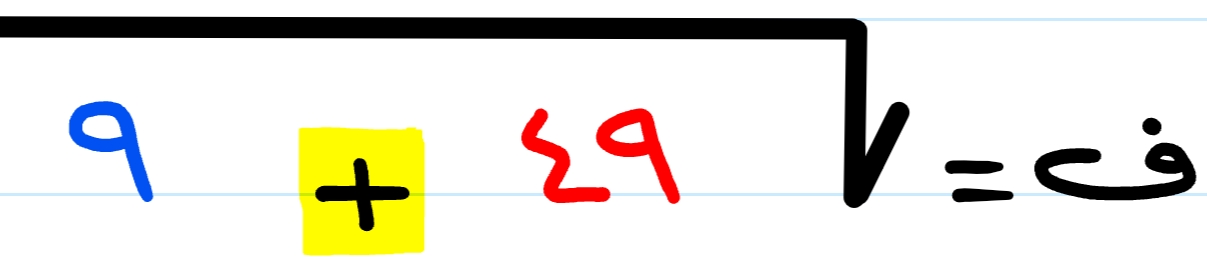 ف = √٤٩ + ٩